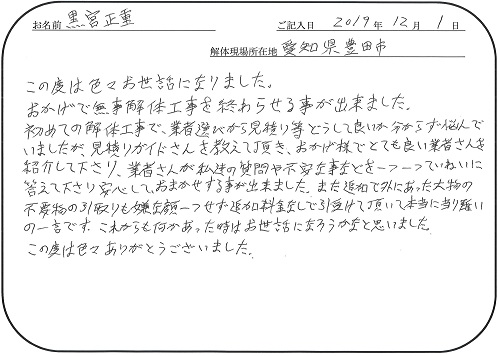 お名前 黒宮正重 ご記入日 2019年 12月 1日
解体現場所在地 愛知県豊田市
この度は色々お世話になりました。
おかげで無事解体工事を終わらせる事が出来ました。
初めての解体工事で、業者選びから見積り等どうして良いか分からず悩んで
いましたが、見積りガイドさんを教えて頂き、おかげ様でとても良い業者さんを
紹介して下さり、業者さんが私達の質問や不安な事などを一つ一つていねいに
答えて下さり安心して、おまかせする事が出来ました。また追加で外にあった大物の
不要物の引取りも嫌な顔一つせず追加料金なしで引受けて頂いて本当に有り難い
の一言です。これからも何かあった時はお世話になろうかなと思いました。
この度は色々ありがとうございました。